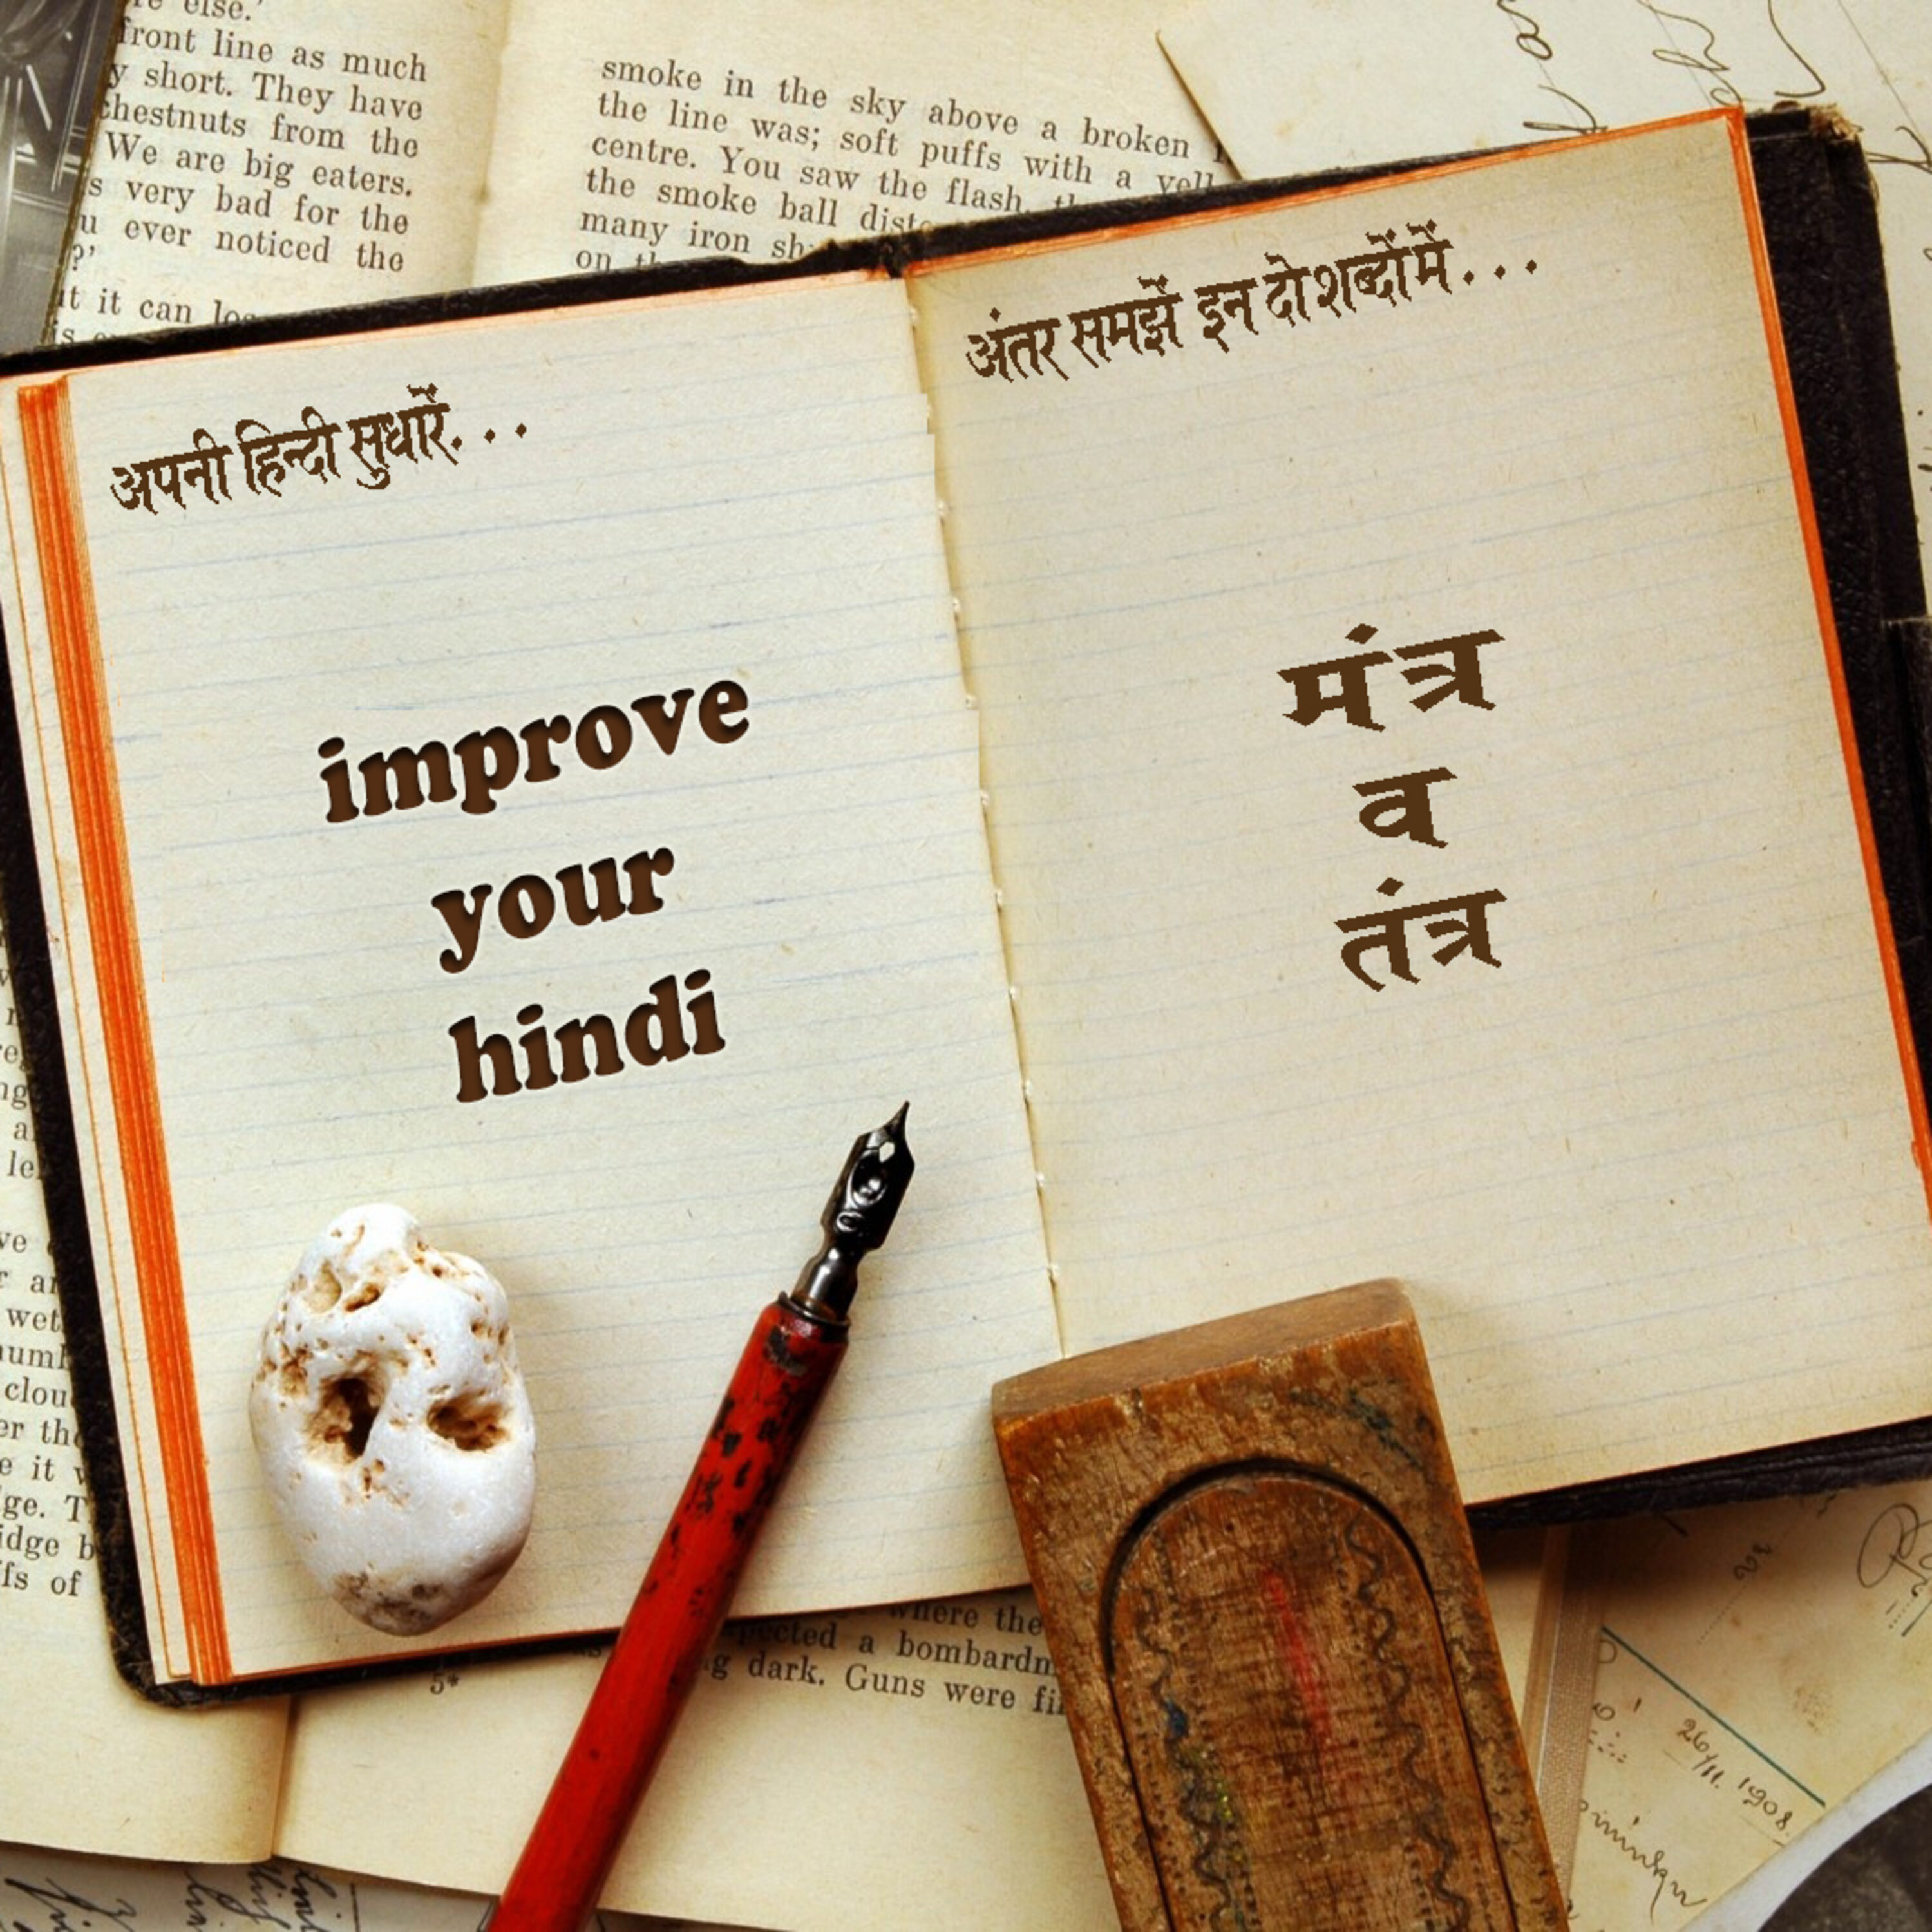 re else.'
front line as much
y short. They have
chestnuts from the
We are big eaters.
s very bad for the
u ever noticed the
?'
it it can
smoke in the sky above a broken
the line was; soft puffs with a
centre. You saw the flash,
the smoke ball
many iron
on
अपनी हिन्दी सुधारें...
improve
your
hindi
अंतर समझें इन दो शब्दों में...
मंत्र
व
तंत्र
wet
clou
er the
e it
ge. T
idge b
fs of
where the
a bombardm
dark. Guns were
5*
26/11. 1908.